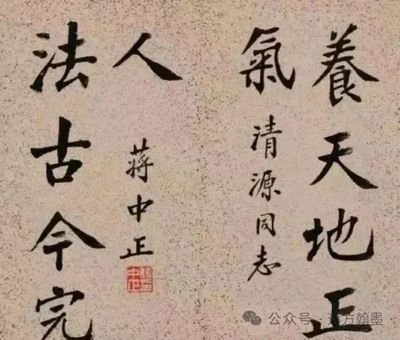 養天地正
氣
清源同志
法古今完
人
蔣中正
公众号 · 方翰墨